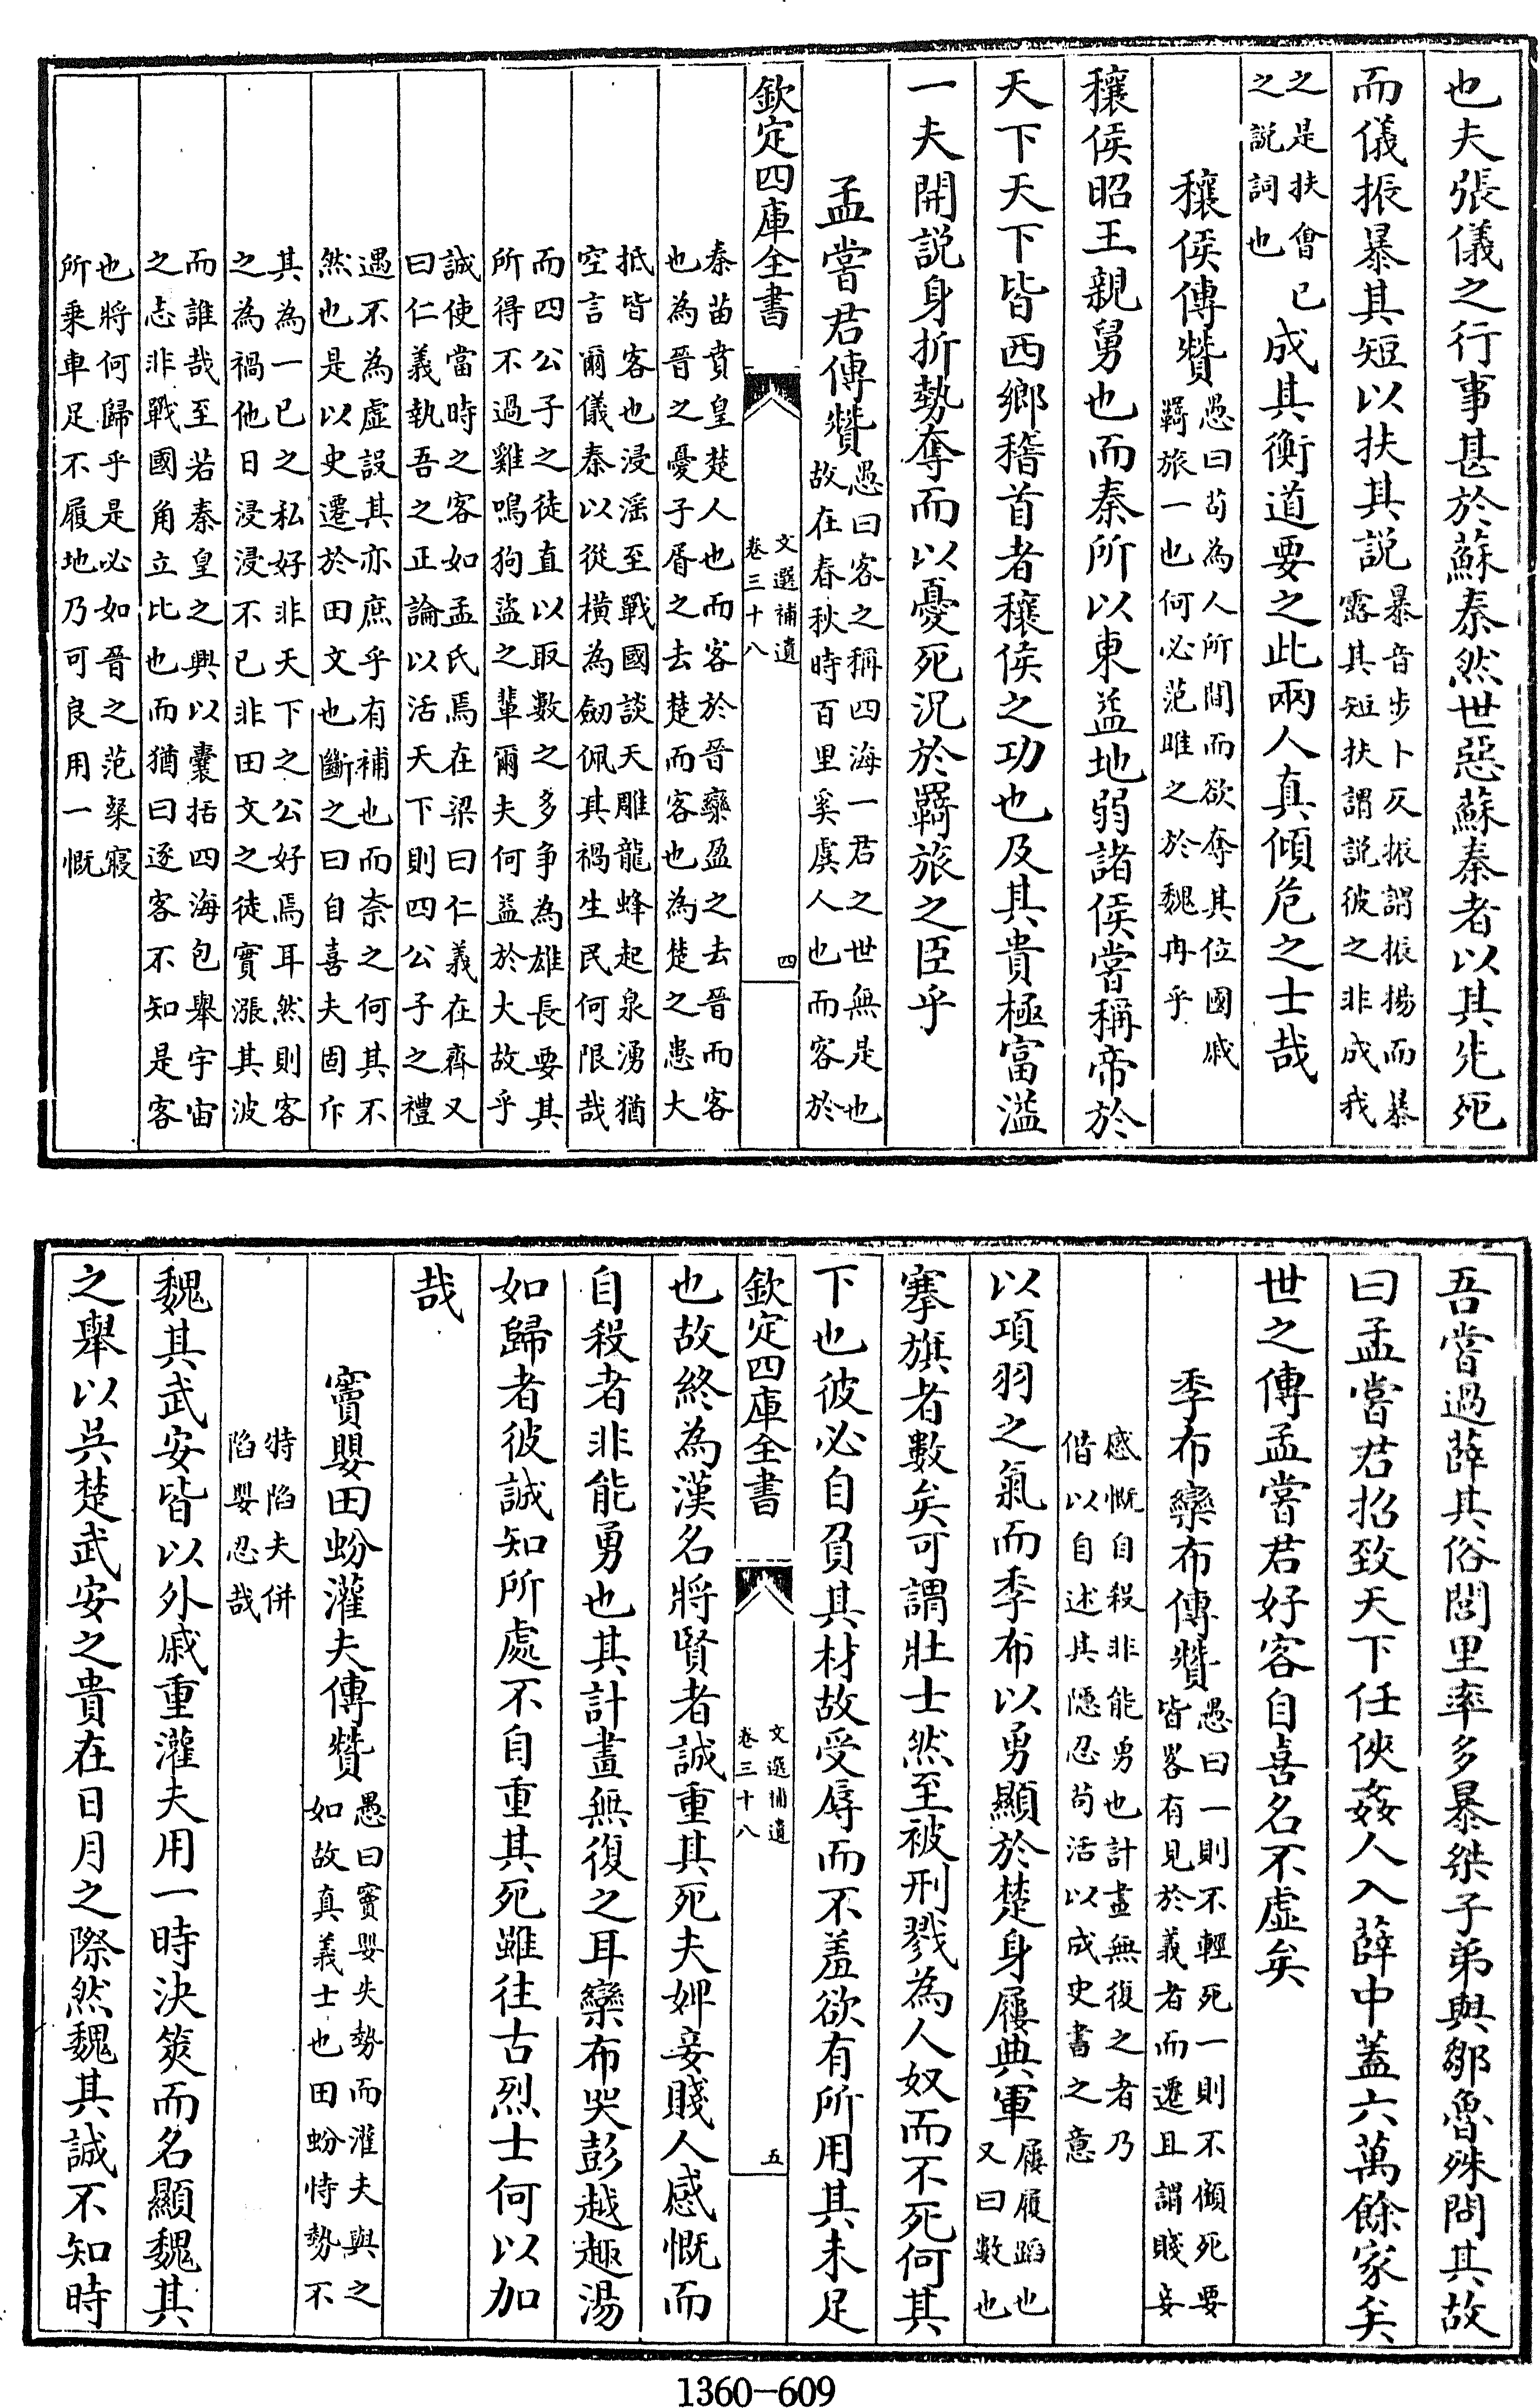 也夫張儀之行事甚於蘇秦然世惡蘇秦者以其先死
而儀振暴其短以扶其説暴音步卜反振謂振揚而暴露其短扶謂説彼之非成我
之是扶會己之説詞也成其衡道要之此兩人真傾危之士哉
穰侯傳贊愚曰苟為人所間而欲奪其位國戚羇旅一也何必范雎之於魏冉乎
穰侯昭王親舅也而秦所以東益地弱諸侯嘗稱帝於
天下天下皆西鄉稽首者穰侯之功也及其貴極富溢
一夫開説身折勢奪而以憂死況於羇旅之臣乎
孟嘗君傳贊愚曰客之稱四海一君之世無是也故在春秋時百里奚虞人也而客於
欽定四庫全書
文選補遺
卷三十八
四
秦苗賁皇楚人也而客於晉欒盈之去晉而客也為晉之憂子胥之去楚而客也為楚之患大
抵皆客也浸滛至戰國談天雕龍蜂起泉湧猶空言爾儀秦以從橫為劒佩其禍生民何限哉
而四公子之徒直以取數之多争為雄長要其所得不過雞鳴狗盜之輩爾夫何益於大故乎
誠使當時之客如孟氏焉在梁曰仁義在齊又曰仁義執吾之正論以活天下則四公子之禮
遇不為虚設其亦庶乎有補也而柰之何其不然也是以史遷於田文也斷之曰自喜夫固斥
其為一已之私好非天下之公好焉耳然則客之為禍他日浸浸不已非田文之徒實漲其波
而誰哉至若秦皇之興以囊括四海包舉宇宙之志非戰國角立比也而猶曰逐客不知是客
也將何歸乎是必如晉之范粲寢所乗車足不履地乃可良用一慨
吾嘗過薛其俗閭里率多暴桀子弟與鄒魯殊問其故
曰孟嘗君招致天下任俠姦人入薛中蓋六萬餘家矣
世之傳孟嘗君好客自喜名不虚矣
季布欒布傳贊愚曰一則不輕死一則不懶死要皆畧有見於義者而遷且謂賤妾
感慨自殺非能勇也計畫無復之者乃偕以自述其隱忍苟活以成史書之意
以項羽之氣而季布以勇顯於楚身屨典軍屨履蹈也又曰數也
搴旗者數矣可謂壯士然至被刑戮為人奴而不死何其
下也彼必自負其材故受辱而不羞欲有所用其未足
欽定四庫全書
文選補遺
卷三十八
五
也故終為漢名將賢者誠重其死夫婢妾賤人感慨而
自殺者非能勇也其計畫無復之耳欒布哭彭越趣湯
如歸者彼誠知所處不自重其死雖往古烈士何以加
哉
竇嬰田蚡灌夫傳贊愚曰竇嬰失勢而灌夫與之如故真義士也田蚡恃勢不
特陷夫併陷嬰忍哉
魏其武安皆以外戚重灌夫用一時決筴而名顯魏其
之舉以吳楚武安之貴在日月之際然魏其誠不知時
1360-609